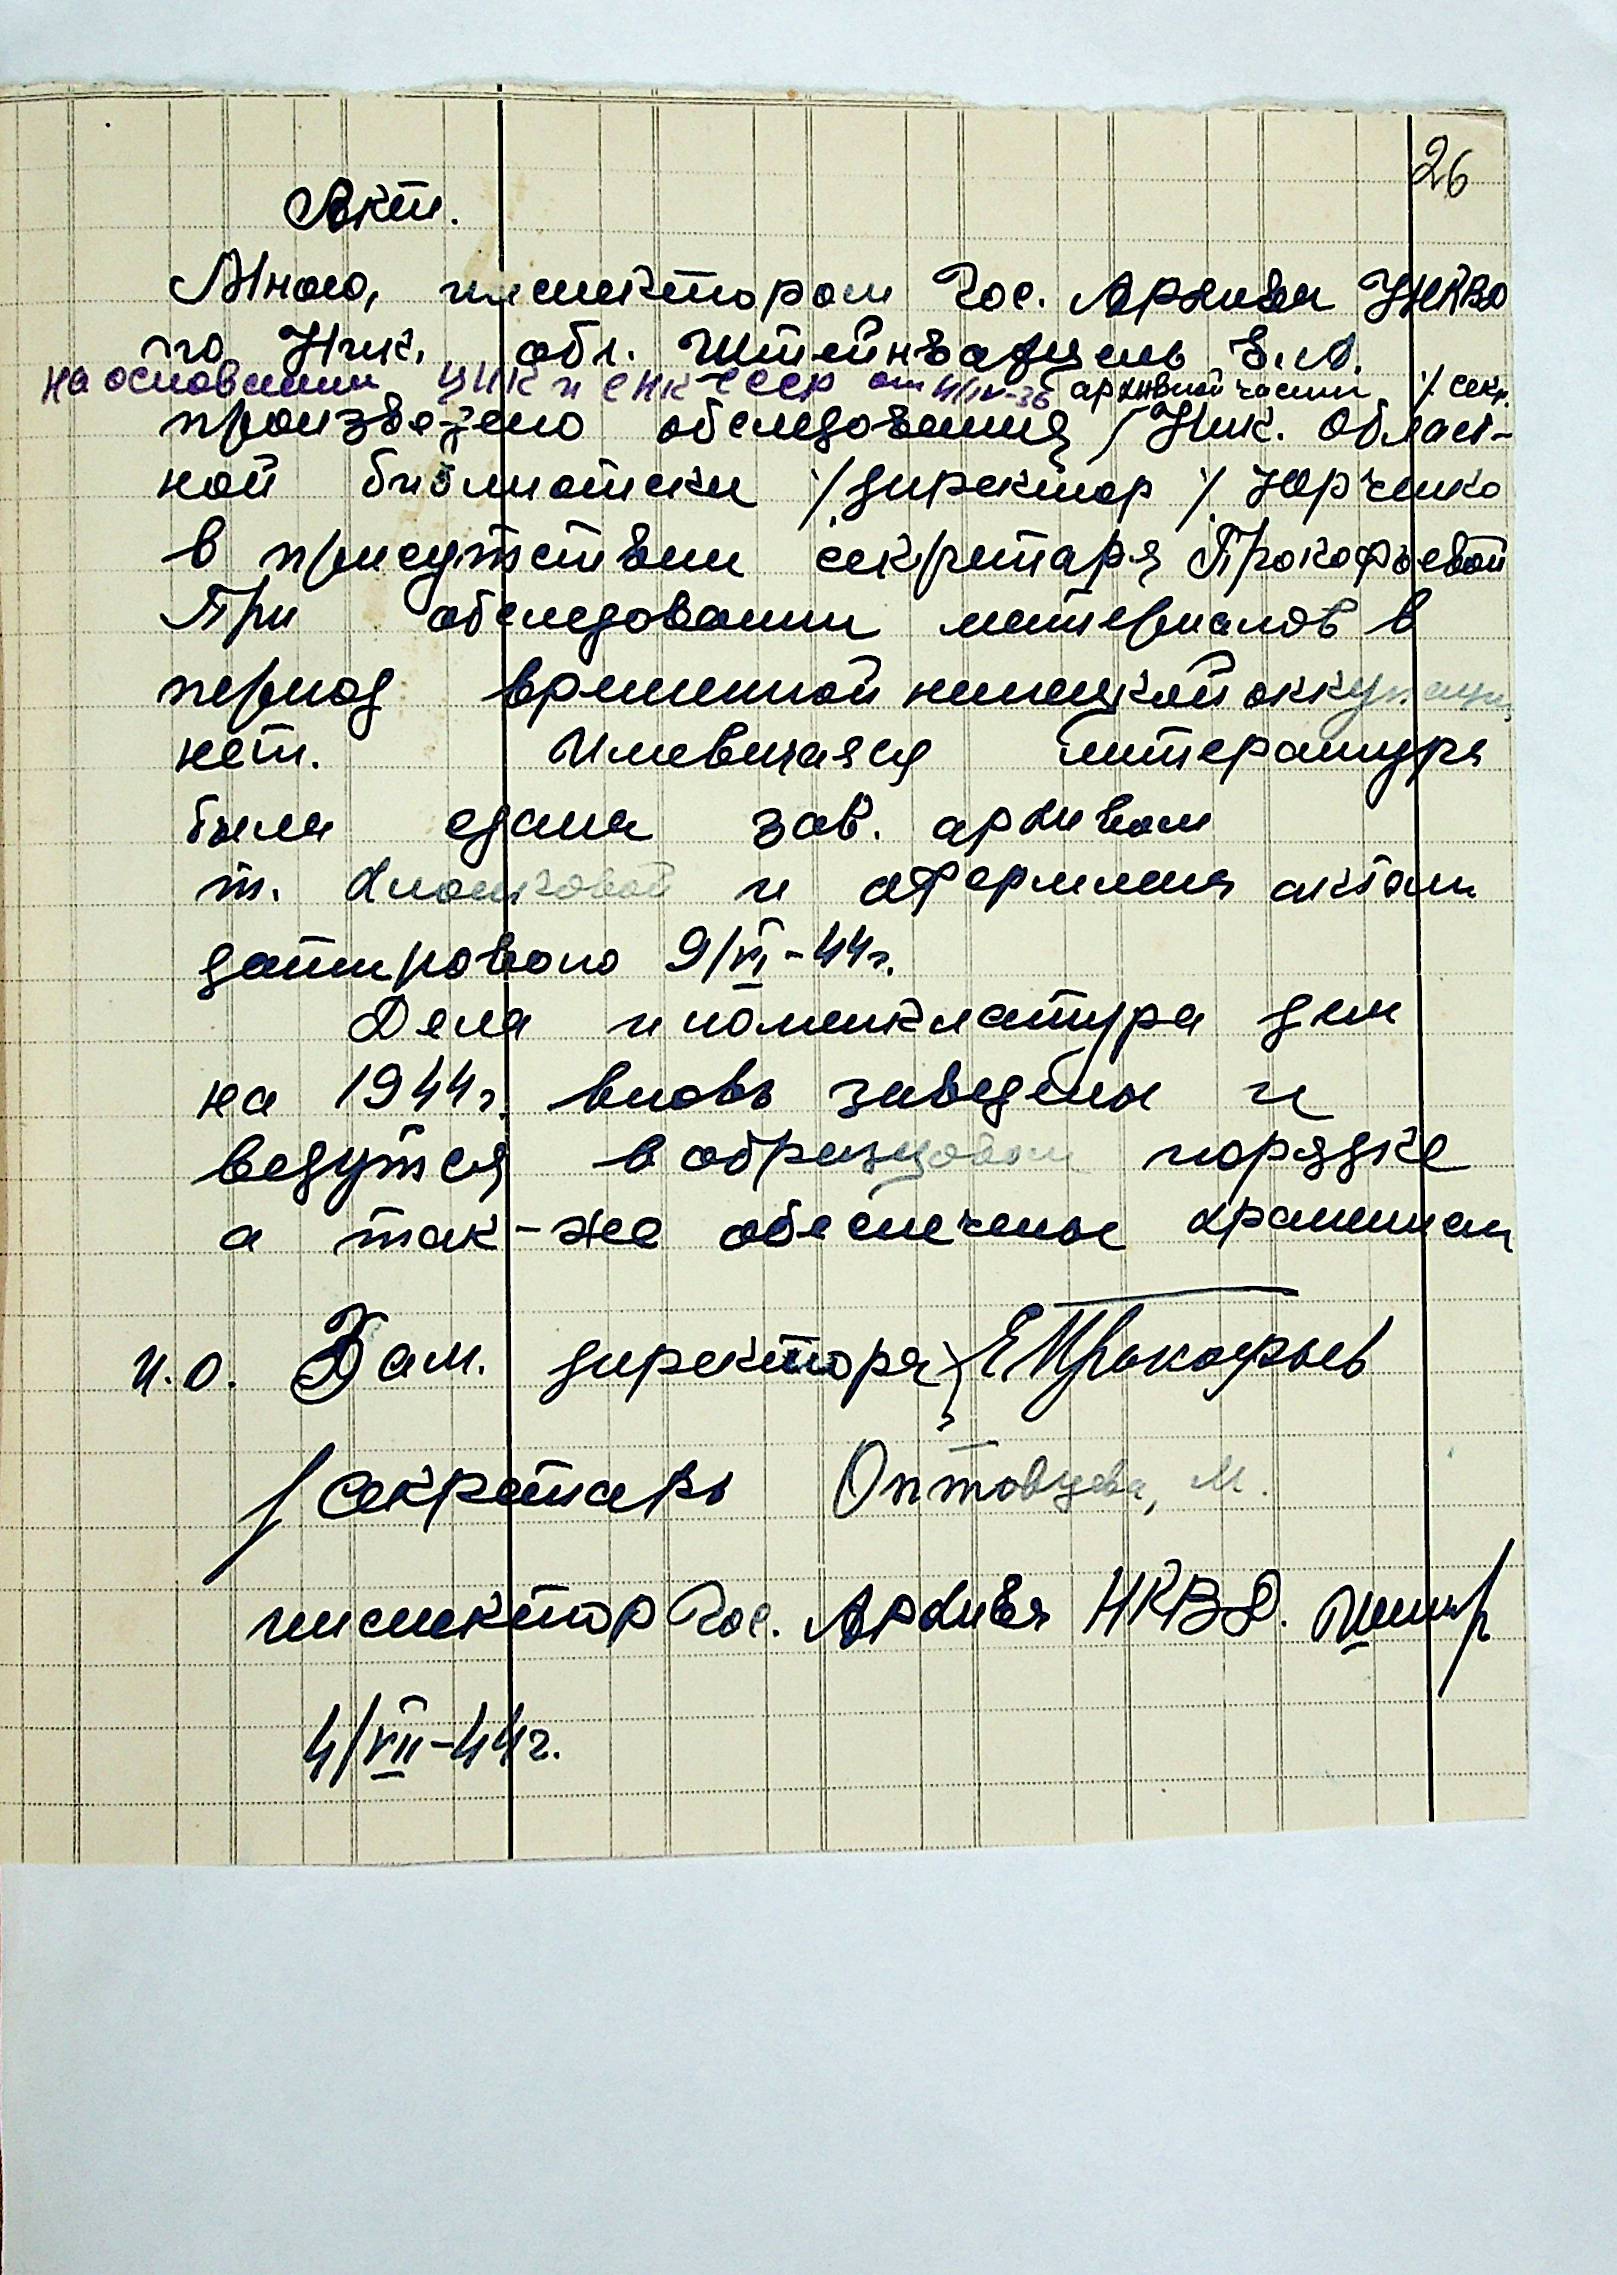 26
Акт.
Мною, инспектором Гос. Архива УНКВД
по Ник. обл. Штейнвацель Е.А.
на основании ЦИК и СНК СССР от 4/IV-36 архивной части % секр.
произведено обследования Ник. Област-
ной библиотеки % директор % Юрченко
в присутствии секретаря Прокофьевой
При обследовании материалов в
период временной немецкой оккупации
нет. Имевшаяся литература
была сдана зав. архивом
т. и оформлена актом
датировано 9/VI-44г.
Дела и номенклатура дел
на 1944г. вновь заведены и
ведутся в образцовом порядке
а так-же обеспечены хранением
и.о. Зам. директора Е Прокофьев
Секретарь Оптовцева, М.
инспектор Гос. Архива НКВД.
4/VII-44г.